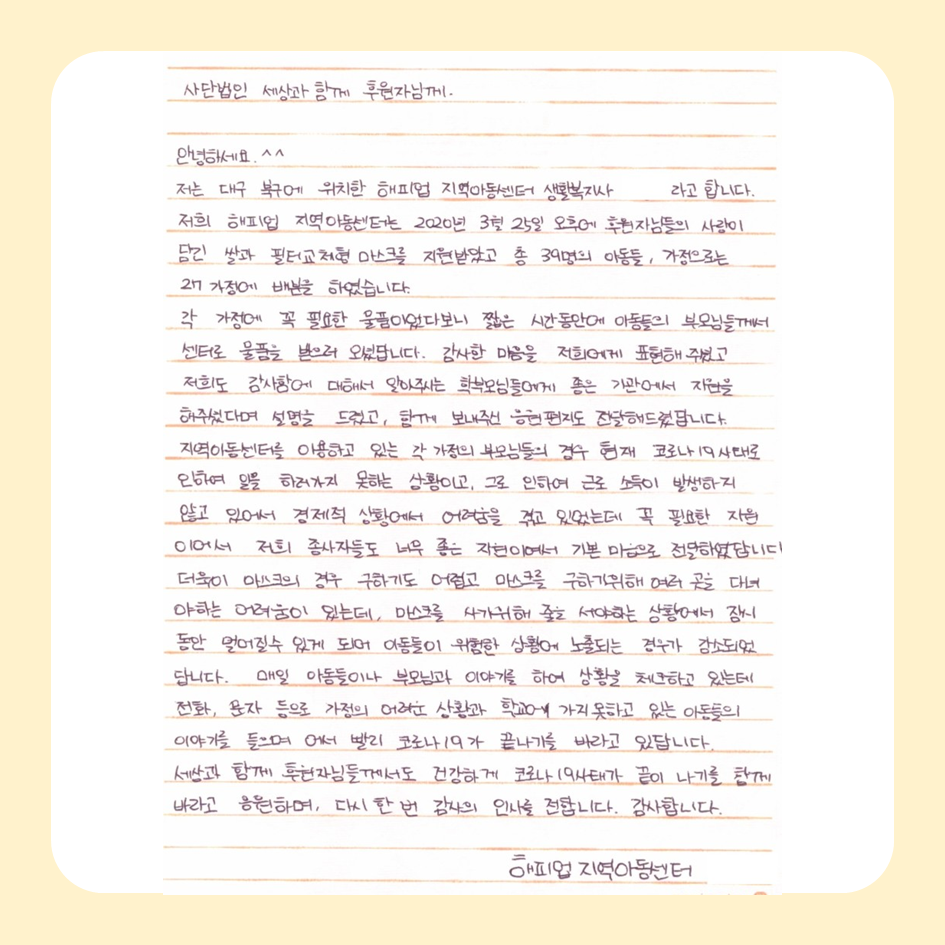 사단법인 세상과 함께 후원자님께.
안녕하세요. ^^
저는 대구 북구에 위치한 해피업 지역아동센터 생활복지사 라고 합니다.
저희 해피업 지역아동센터는 2020년 3월 25일 오후에 후원자님들의 사랑이
담긴 쌀과 필터교체형 마스크를 지원받았고 총 39명의 아동들, 가정으로는
27 가정에 배분을 하였습니다.
각 가정에 꼭 필요한 물품이었다보니 짧은 시간동안에 아동들의 부모님들께서
센터로 물품을 받으러 오셨답니다. 감사한 마음을 저희에게 표현해 주셨고
저희도 감사함에 대해서 알아주시는 학부모님들에게 좋은 기관에서 지원을
해주셨다며 설명을 드렸고, 함께 보내주신 응원편지도 전달해드렸답니다.
지역아동센터를 이용하고 있는 각 가정의 부모님들의 경우 현재 코로나19사태로
인하여 일을 하러가지 못하는 상황이고, 그로 인하여 근로 소득이 발생하지
않고 있어서 경제적 상황에서 어려움을 겪고 있었는데 꼭 필요한 지원
이어서 저희 종사자들도 너무 좋은 지원이여서 기쁜 마음으로 전달하였답니다
더욱이 마스크의 경우 구하기도 어렵고 마스크를 구하기위해 여러 곳을 다녀
야하는 어려움이 있는데, 마스크를 사기위해 줄을 서야하는 상황에서 잠시
동안 멀어질수 있게 되어 아동들이 위험한 상황에 노출되는 경우가 감소되었
답니다. 매일 아동들이나 부모님과 이야기를 하여 상황을 체크하고 있는데
전화, 문자 등으로 가정의 어려운 상황과 학교에 가지못하고 있는 아동들의
이야기를 들으며 어서 빨리 코로나19가 끝나기를 바라고 있답니다.
세상과 함께 후원자님들께서도 건강하게 코로나19사태가 끝이 나기를 함께
바라고 응원하며, 다시 한 번 감사의 인사를 전합니다. 감사합니다.
해피업 지역아동센터